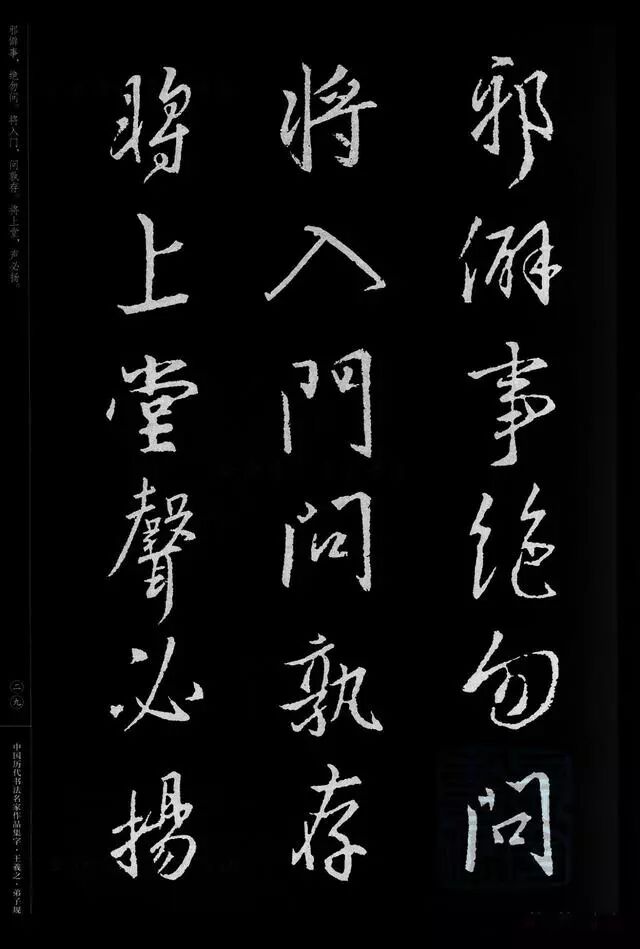 邪僻事絶勿問
將入門問孰存
將上堂聲必揚
邪僻事，绝勿问。将入门，问孰存。将上堂，声必扬。
二九
中国历代书法名家作品集字·王羲之·弟子规